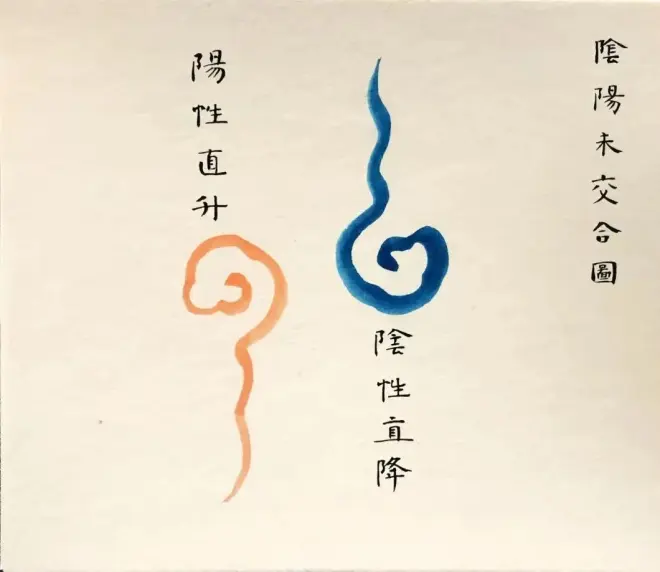 陰陽未交合圖
陰性直降
陽性直升